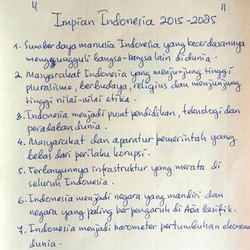 " Impian Indonesia 2015-2085 "
1. Sumber daya manusia Indonesia yang kecerdasannya
mengungguli bangsa-bangsa lain di dunia.
2. Masyarakat Indonesia yang menjunjung tinggi
pluralisme, berbudaya, religius dan menjunjung
tinggi nilai-nilai etika.
3. Indonesia menjadi pusat pendidikan, teknologi dan
peradaban dunia.
4. Masyarakat dan aparatur pemerintah yang
bebas dari perilaku korupsi.
5. Terbangunnya infrastruktur yang merata di
seluruh Indonesia.
6. Indonesia menjadi negara yang mandiri dan
negara yang paling berpengaruh di Asia Pasifik.
7. Indonesia menjadi barometer pertumbuhan ekonomi
dunia.